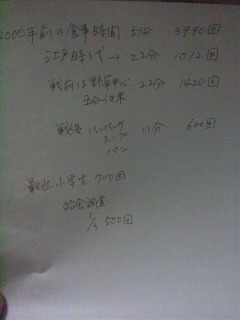 2000年前の食事時間 51分 3990回
江戸時代→ 22分 1012回
戦前は野菜中心 22分 1420回
五分づき米
戦後 ハンバーグ 11分 620回
スープ
パン
最近 小学生 700回
給食調査
1/3 500回